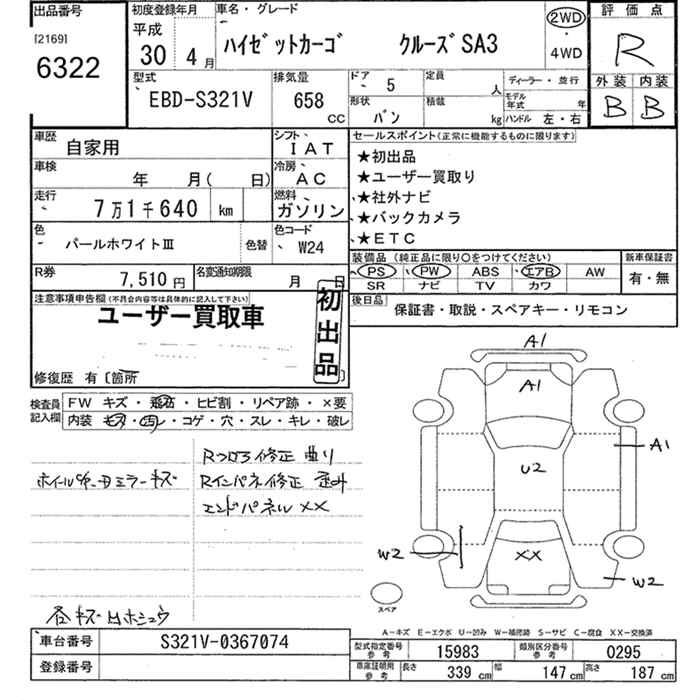 出品番号
[2169]
6322
初度登録年月
平成
30 4月
車名・グレード
ハイゼットカーゴ クルーズSA3
2WD
・
4WD
評価点
R
外装 内装
B B
型式
EBD-S321V
排気量
658
CC
ドア 5
形状 バン
定員 人
積載 kg
ディーラー・並行
モデル年式 年
ハンドル 左・右
車歴 自家用
シフト IAT
車検 年 月( 日)
冷房 AC
走行 7万1千640 km
燃料 ガソリン
色 パールホワイトⅢ 色替
色コード W24
R券 7,510円
名変通知期限 月 日
セールスポイント(正常に機能するものに限ります)
★初出品
★ユーザー買取り
★社外ナビ
★バックカメラ
★ETC
装備品 (純正品に限り○をつけてください)
PS PW ABS エアB AW
SR ナビ TV カワ
新車保証書
有・無
後日品 保証書・取説・スペアキー・リモコン
注意事項申告欄(不具合内容等は具体的に記入して下さい)
ユーザー買取車
初出品
修復歴 有〔箇所
検査員記入欄
FW キズ・飛石・ヒビ割・リペア跡・×要
内装 キズ・汚レ・コゲ・穴・スレ・キレ・破レ
Rフロア修正 曲り
Rインパネ修正 歪み
エンドパネルXX
ミラーキズ
各キズ
A1
A1
A1
U2
W2
XX
W2
スペア
A-キズ E-エクボ U-凹み W-補修跡 S-サビ C-腐食 XX-交換済
車台番号 S321V-0367074
登録番号
型式指定番号 参考 15983
類別区分番号 参考 0295
車庫証明用 参考 長さ 339 cm 幅 147 cm 高さ 187 cm